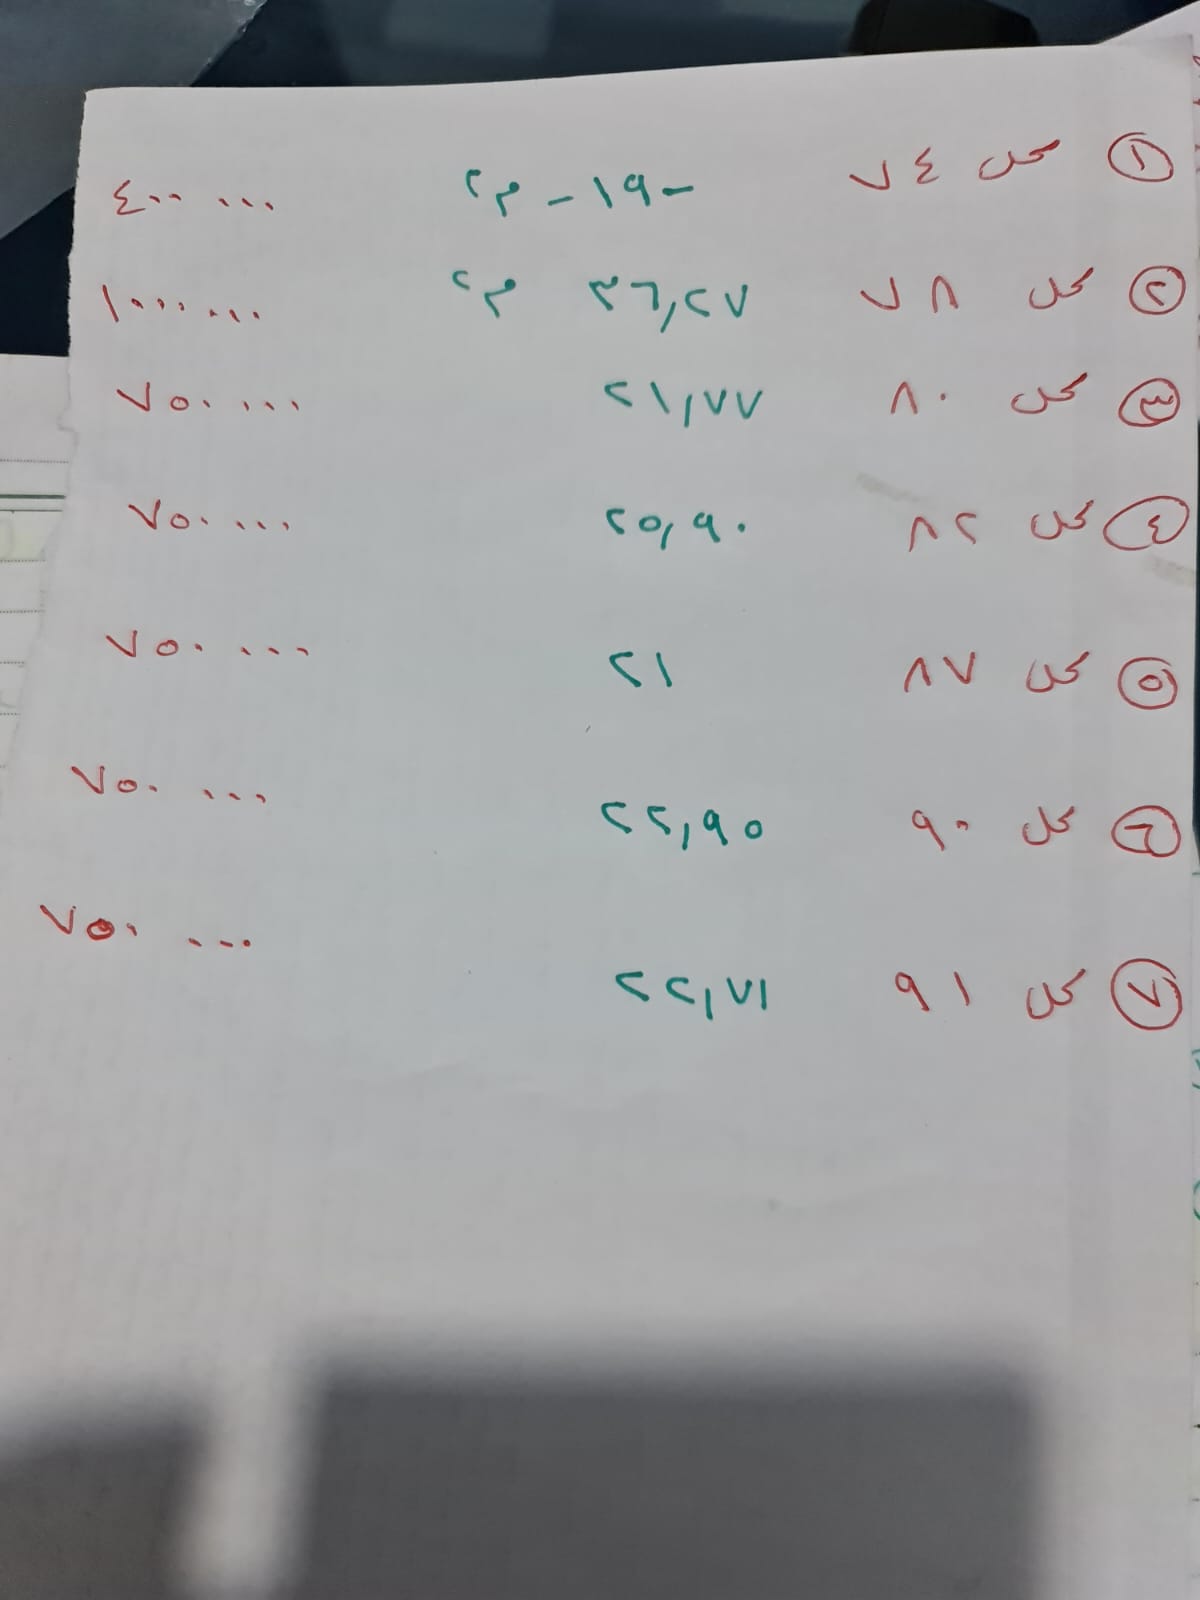 ① محل ٧٤ -١٩- م٢ ٤٠٠ ٠٠٠
② محل ٧٨ ٣٦,٢٧ م٢ ١٠٠٠ ٠٠٠
③ محل ٨٠ ٢١,٧٧ ٧٥٠ ٠٠٠
④ محل ٨٢ ٢٥,٩٠ ٧٥٠ ٠٠٠
⑤ محل ٨٧ ٢١ ٧٥٠ ٠٠٠
⑥ محل ٩٠ ٢٢,٩٥ ٧٥٠ ٠٠٠
⑦ محل ٩١ ٢٢,٧١ ٧٥٠ ٠٠٠